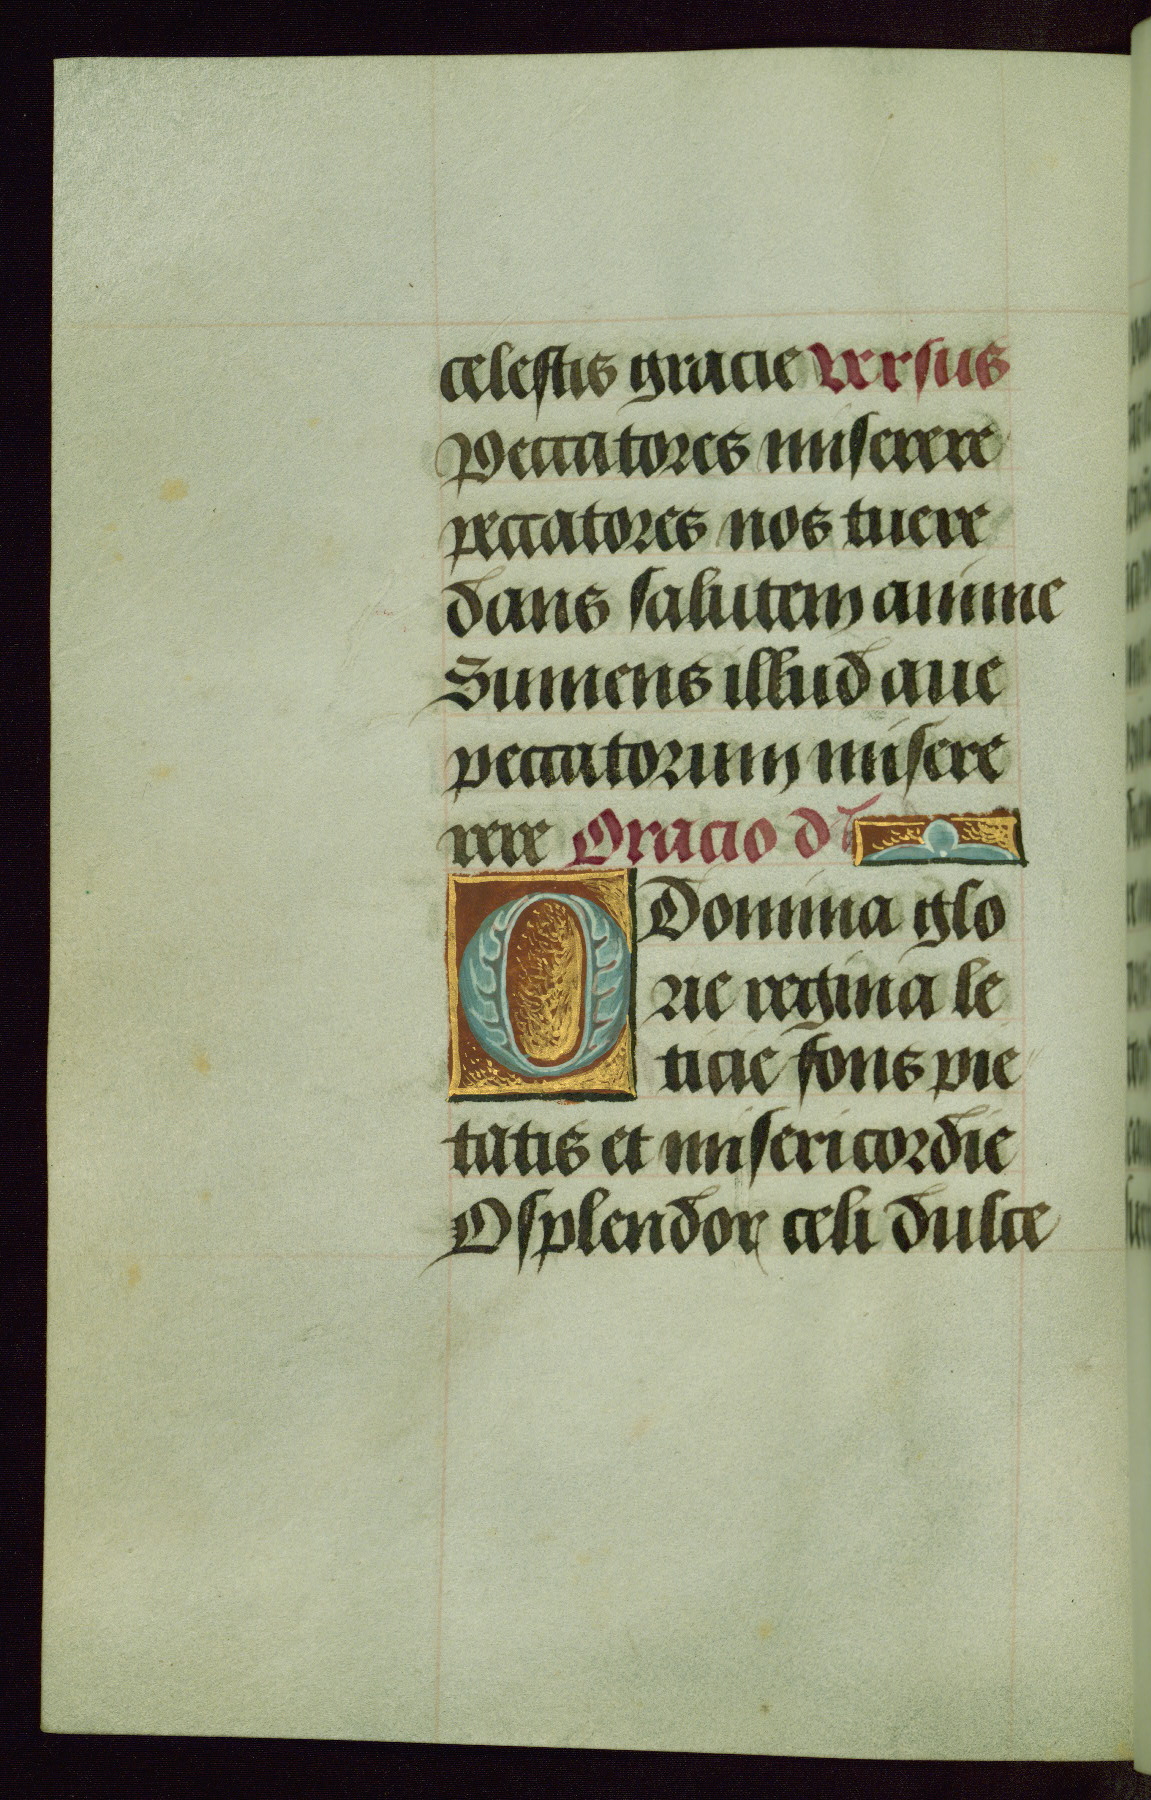 celestis gracie versus
Peccatores miserere
peccatores nos tuere
dans salutem anime
Sumens illud aue
peccatorum misere
rere Oracio
O Domina glo
rie regina le
ticie fons pie
tatis et misericordie
O splendor celi dulce